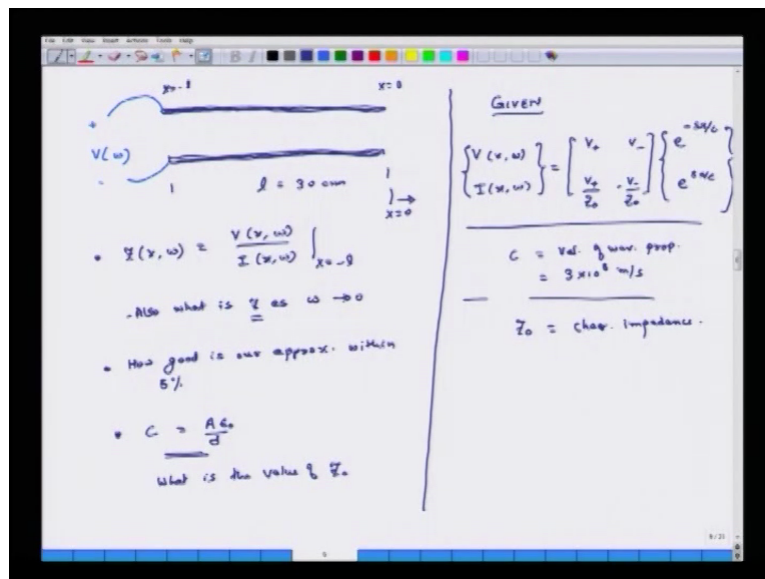 x=-l
x=0
+
V(ω)
-
l = 30 cm
x=0
• Z(x,ω) = V(x,ω) / I(x,ω) |x=-l
- Also what is Z as ω → 0
• How good is our approx. within
5%
• C = Aε₀/d
What is the value of Z₀
GIVEN
{V(x,ω) I(x,ω)} = [V₊ V₋ V₊/Z₀ -V₋/Z₀] {e^-sx/c e^sx/c}
C = Vel. of wav. prop.
= 3×10⁸ m/s
Z₀ = char. impedance.
9/21